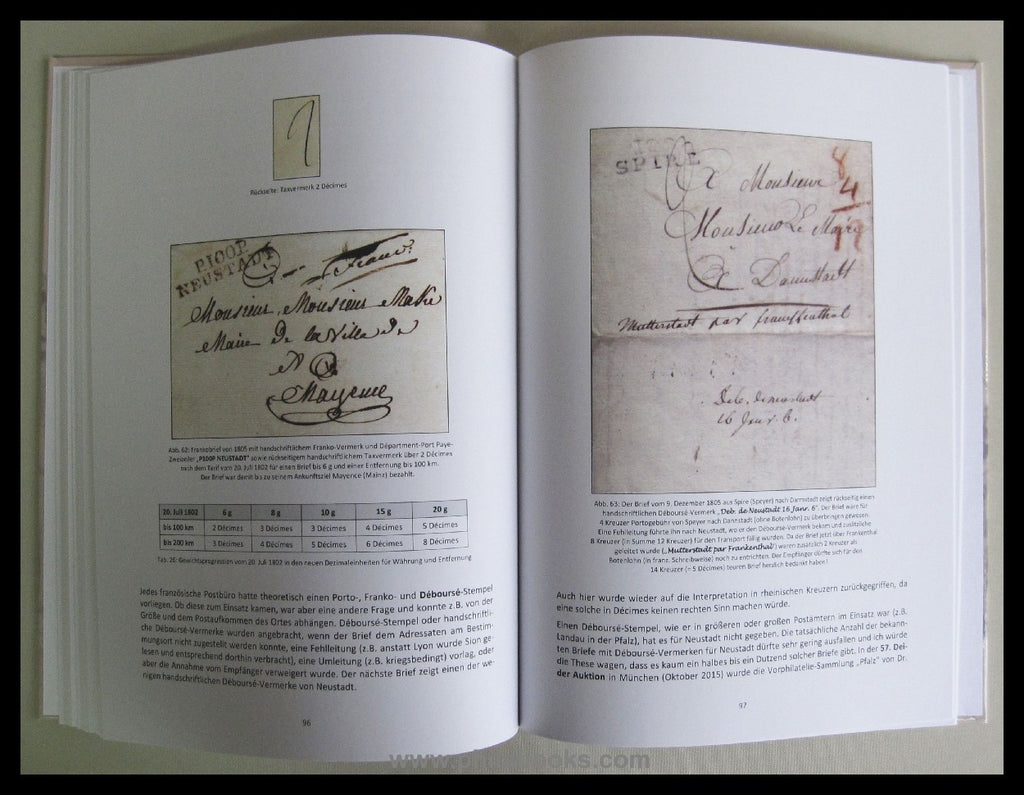 Rückseite: Taxvermerk 2 Décimes
P.100P.
NEUSTADT
Franco
Monsieur, Monsieur Macké
Maire De la Ville De
Mayence
Abb. 62: Frankobrief von 1805 mit handschriftlichem Franko-Vermerk und Départment-Port Paye-
Zweizeiler „P100P NEUSTADT“ sowie rückseitigem handschriftlichem Taxvermerk über 2 Décimes
nach dem Tarif vom 20. Juli 1802 für einen Brief bis 6 g und einer Entfernung bis 100 km.
Der Brief war damit bis zu seinem Ankunftsziel Mayence (Mainz) bezahlt.
20. Juli 1802 6 g 8 g 10 g 15 g 20 g
bis 100 km 2 Décimes 3 Décimes 3 Décimes 4 Décimes 5 Décimes
bis 200 km 3 Décimes 4 Décimes 5 Décimes 6 Décimes 8 Décimes
Tab. 26: Gewichtsprogression vom 20. Juli 1802 in den neuen Dezimaleinheiten für Währung und Entfernung
Jedes französische Postbüro hatte theoretisch einen Porto-, Franko- und Déboursé-Stempel
vorliegen. Ob diese zum Einsatz kamen, war aber eine andere Frage und konnte z.B. von der
Größe und dem Postaufkommen des Ortes abhängen. Déboursé-Stempel oder handschriftli-
che Déboursé-Vermerke wurden angebracht, wenn der Brief dem Adressaten am Bestim-
mungsort nicht zugestellt werden konnte, eine Fehlleitung (z.B. anstatt Lyon wurde Sion ge-
lesen und entsprechend dorthin verbracht), eine Umleitung (z.B. kriegsbedingt) vorlag, oder
aber die Annahme vom Empfänger verweigert wurde. Der nächste Brief zeigt einen der we-
nigen handschriftlichen Déboursé-Vermerke von Neustadt.
96
SPIRE
8
4
A Monsieur
Monsieur Le Maire
Dannstadt
Mutterstadt par franckenthal
Deb. de neustadt
16 Janr. 6.
Abb. 63: Der Brief vom 9. Dezember 1805 aus Spire (Speyer) nach Dannstadt zeigt rückseitig einen
handschriftlichen Déboursé-Vermerk „Deb. de Neustadt 16 Janr. 6“. Der Brief wäre für
4 Kreuzer Portogebühr von Speyer nach Dannstadt (ohne Botenlohn) zu überbringen gewesen.
Eine Fehlleitung führte ihn nach Neustadt, wo er den Déboursé-Vermerk bekam und zusätzliche
8 Kreuzer (in Summe 12 Kreuzer) für den Transport fällig wurden. Da der Brief jetzt über Frankenthal
geleitet wurde („Mutterstadt par Frankenthal“) waren zusätzlich 2 Kreuzer als
Botenlohn (in franz. Schreibweise) noch zu entrichten. Der Empfänger dürfte sich für den
14 Kreuzer (= 5 Décimes) teuren Brief herzlich bedankt haben!
Auch hier wurde wieder auf die Interpretation in rheinischen Kreuzern zurückgegriffen, da
eine solche in Décimes keinen rechten Sinn machen würde.
Einen Déboursé-Stempel, wie er in größeren oder großen Postämtern im Einsatz war (z.B.
Landau in der Pfalz), hat es für Neustadt nicht gegeben. Die tatsächliche Anzahl der bekann-
ten Briefe mit Déboursé-Vermerken für Neustadt dürfte sehr gering ausfallen und ich würde
die These wagen, dass es kaum ein halbes bis ein Dutzend solcher Briefe gibt. In der 57. Dei-
der Auktion in München (Oktober 2015) wurde die Vorphilatelie-Sammlung „Pfalz“ von Dr.
97